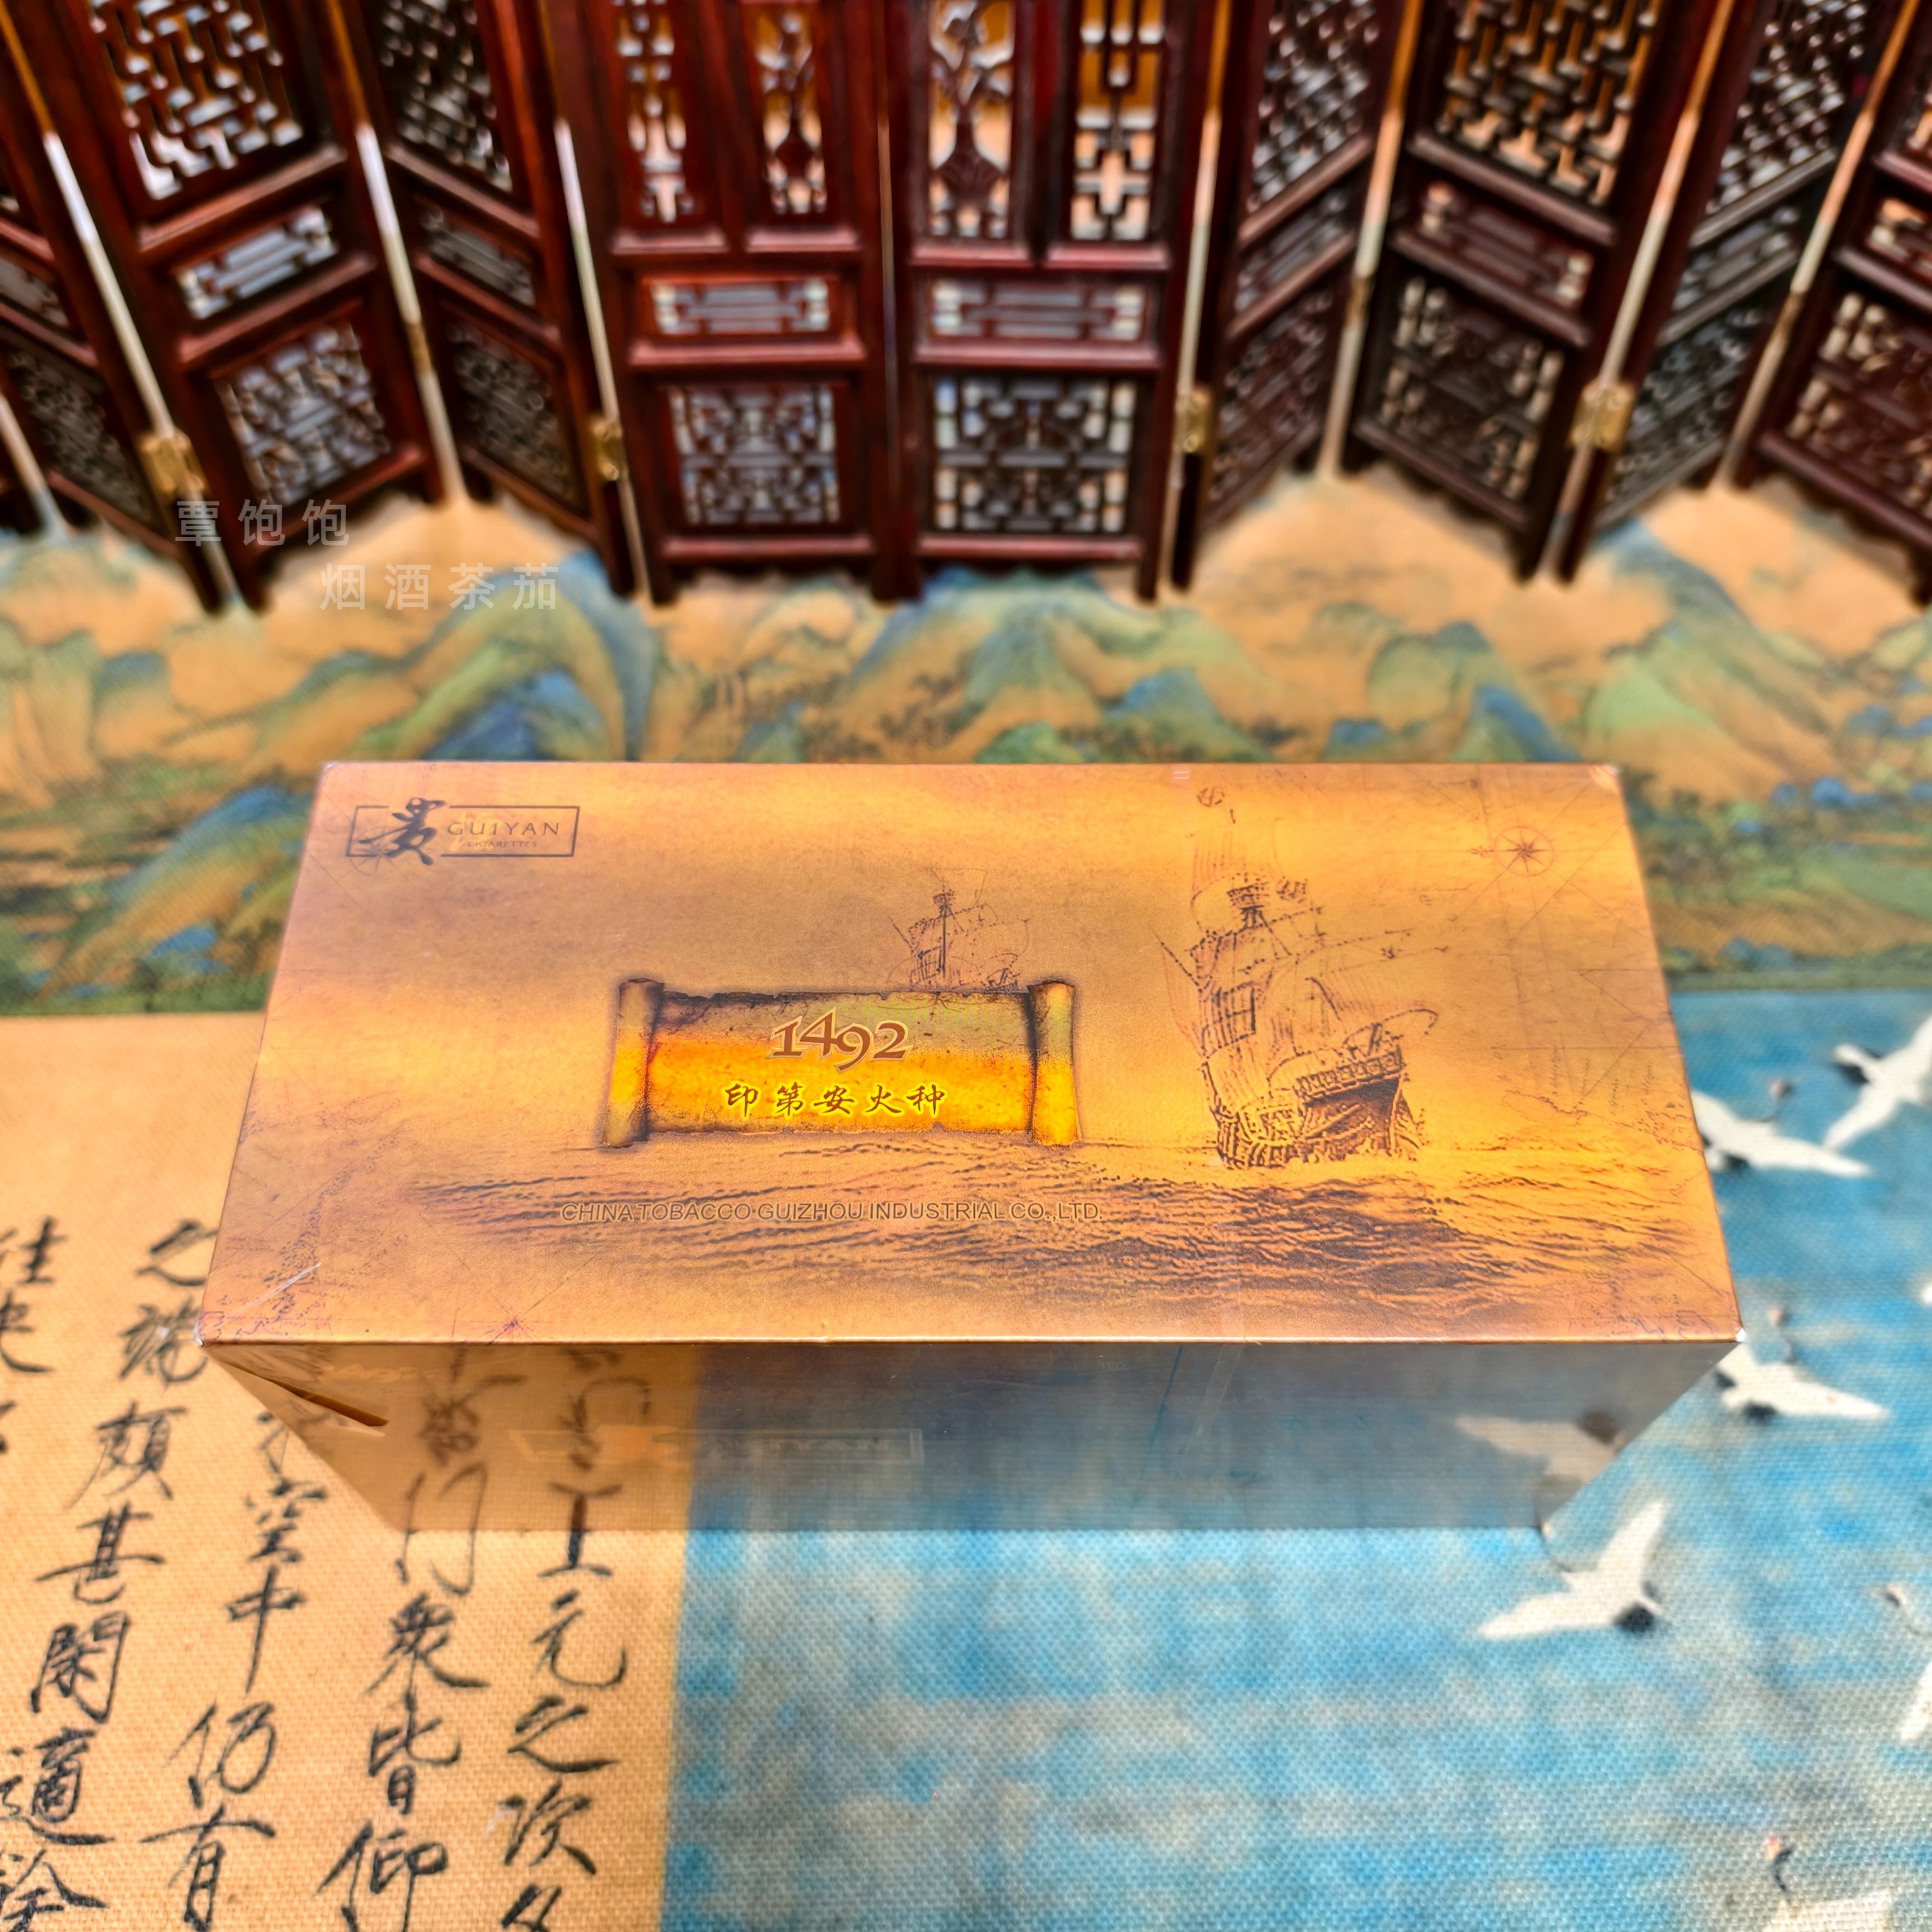 覃饱饱
烟酒茶茄
贵
GUIYAN
CIGARETTES
1492
印第安火种
CHINA TOBACCO GUIZHOU INDUSTRIAL CO.,LTD.
之
端
頗
甚
閑
適
空
中
仍
有
門
衆
皆
仰
上
元
之
次